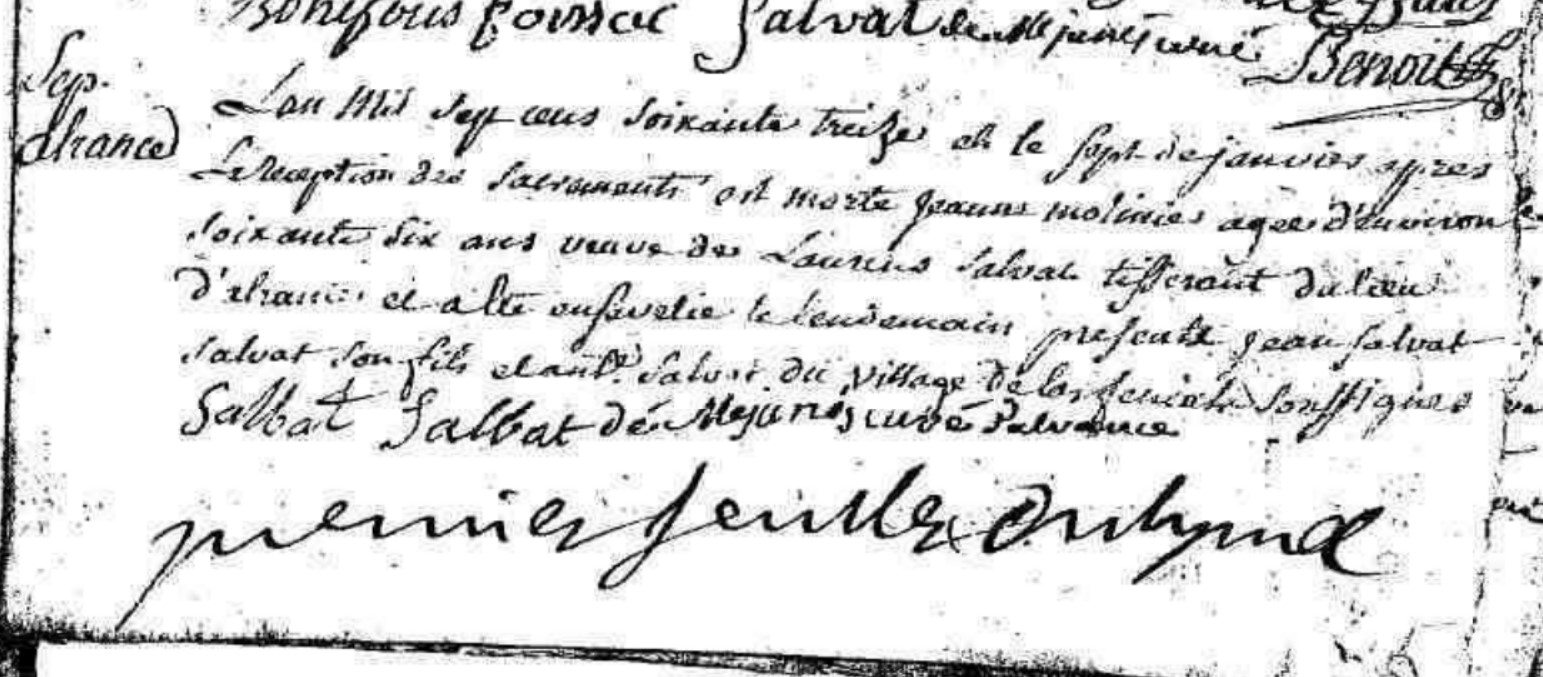 Bonifous Salvat de Mejanes curé
Benoit
Sep.
dhance
Lan mil sept cens soixante treize et le sept de janvier appres
La reception des sacrements est morte jeanne molinies agee d'environ
soixante dix ans veuve de Laurens salvat tisserant du lieu
et a ete ensevelie le lendemain presents jean salvat
salvat son fils et ant. salvat du village de soussignes
Salbat Salbat de Mejanes curé
premier feuille